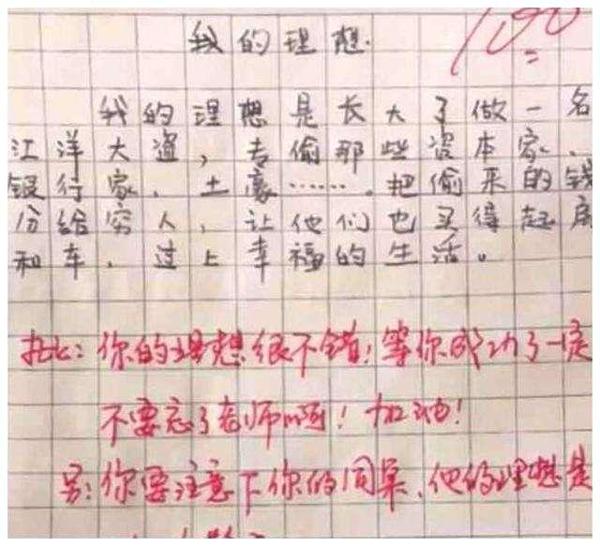 我的理想
100
我的理想是长大了做一名
江洋大盗，专偷那些资本家、
银行家、土豪……。把偷来的钱
分给穷人，让他们也买得起房
和车，过上幸福的生活。
批：你的理想很不错！等你成功了一定
不要忘了老师啊！加油！
另：你要注意下你的同桌，他的理想是